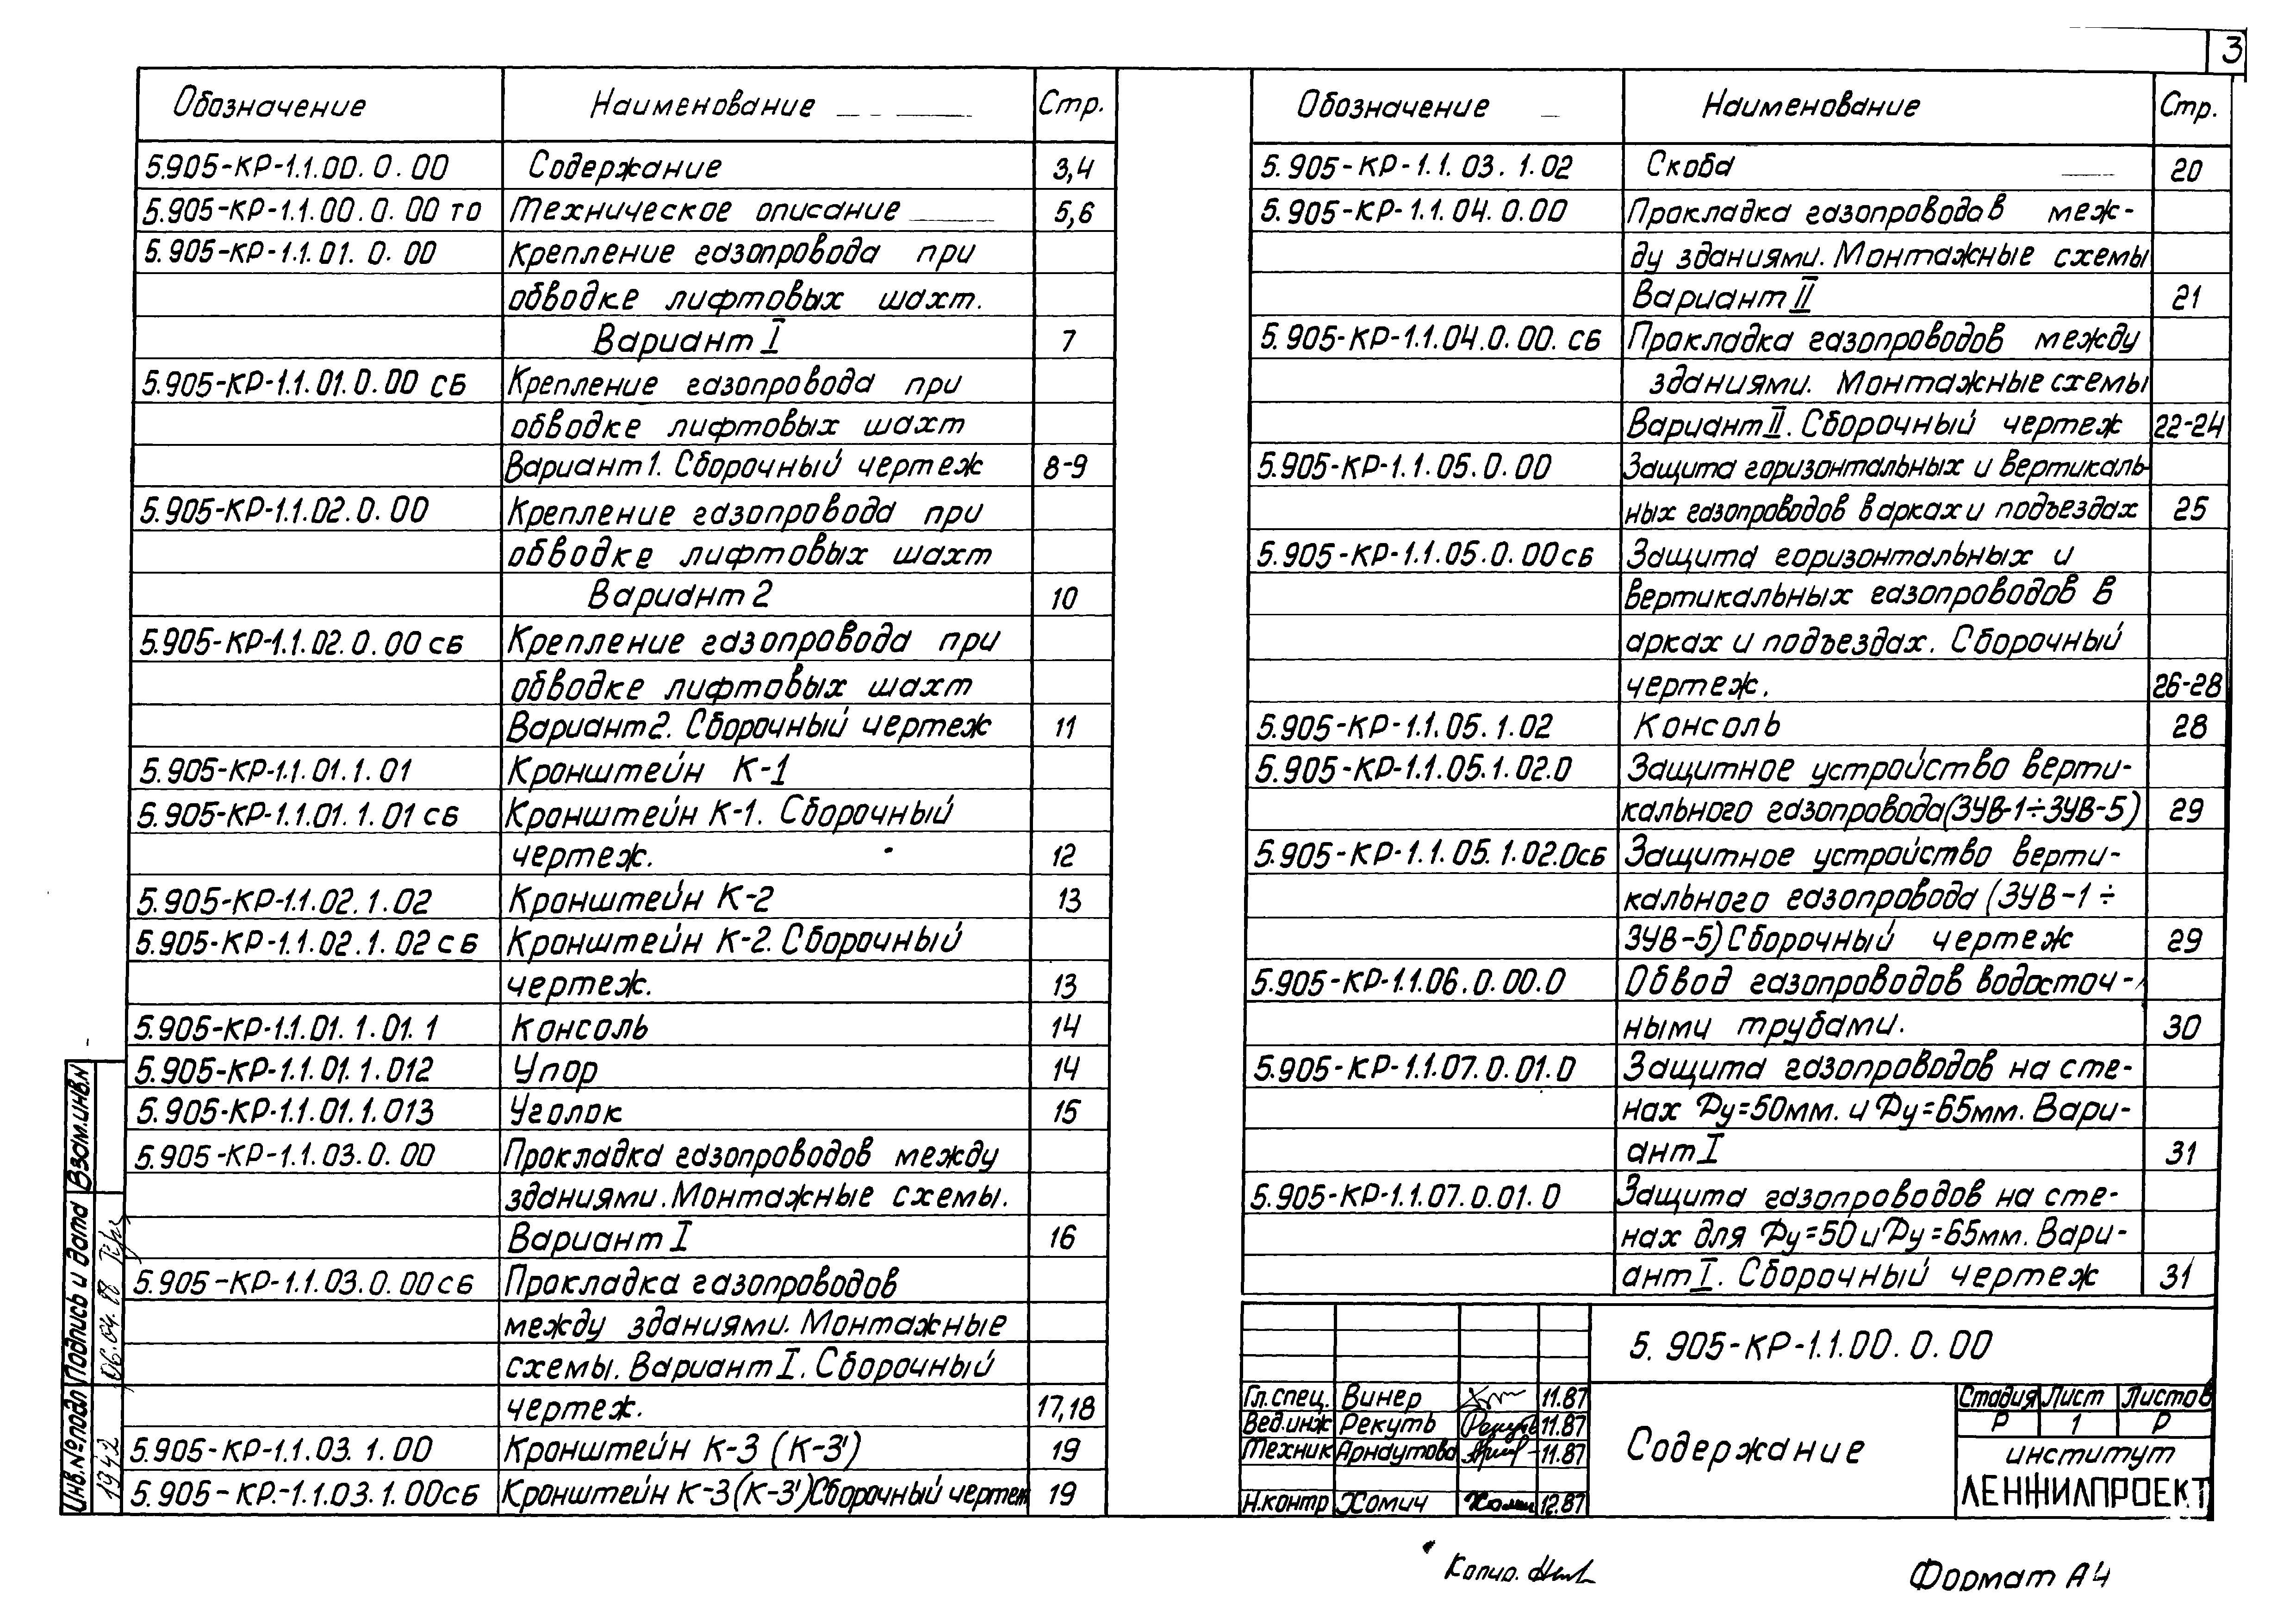 3
Обозначение Наименование Стр.
5.905-КР-1.1.00.0.00 Содержание 3,4
5.905-КР-1.1.00.0.00 ТО Техническое описание 5,6
5.905-КР-1.1.01.0.00 Крепление газопровода при
обводке лифтовых шахт.
Вариант I 7
5.905-КР-1.1.01.0.00 СБ Крепление газопровода при
обводке лифтовых шахт
Вариант 1. Сборочный чертеж 8-9
5.905-КР-1.1.02.0.00 Крепление газопровода при
обводке лифтовых шахт
Вариант 2 10
5.905-КР-1.1.02.0.00 СБ Крепление газопровода при
обводке лифтовых шахт
Вариант 2. Сборочный чертеж 11
5.905-КР-1.1.01.1.01 Кронштейн К-1
5.905-КР-1.1.01.1.01 СБ Кронштейн К-1. Сборочный
чертеж. 12
5.905-КР-1.1.02.1.02 Кронштейн К-2 13
5.905-КР-1.1.02.1.02 СБ Кронштейн К-2. Сборочный
чертеж. 13
5.905-КР-1.1.01.1.01.1 Консоль 14
5.905-КР-1.1.01.1.012 Упор 14
5.905-КР-1.1.01.1.013 Уголок 15
5.905-КР-1.1.03.0.00 Прокладка газопроводов между
зданиями. Монтажные схемы.
Вариант I 16
5.905-КР-1.1.03.0.00 СБ Прокладка газопроводов
между зданиями. Монтажные
схемы. Вариант I. Сборочный
чертеж. 17,18
5.905-КР-1.1.03.1.00 Кронштейн К-3 (К-3') 19
5.905-КР.-1.1.03.1.00СБ Кронштейн К-3 (К-3') Сборочный чертеж 19
Обозначение Наименование Стр.
5.905-КР-1.1.03.1.02 Скоба 20
5.905-КР-1.1.04.0.00 Прокладка газопроводав меж-
ду зданиями. Монтажные схемы
Вариант II 21
5.905-КР-1.1.04.0.00. СБ Прокладка газопроводов между
зданиями. Монтажные схемы
Вариант II. Сборочный чертеж 22-24
5.905-КР-1.1.05.0.00 Защита горизонтальных и вертикаль-
ных газопроводов в арках и подъездах 25
5.905-КР-1.1.05.0.00 СБ Защита горизонтальных и
вертикальных газопроводов в
арках и подъездах. Сборочный
чертеж. 26-28
5.905-КР-1.1.05.1.02 Консоль 28
5.905-КР-1.1.05.1.02.0 Защитное устройство верти-
кального газопровода (ЗУВ-1÷ЗУВ-5) 29
5.905-КР-1.1.05.1.02.0СБ Защитное устройство верти-
кального газопровода (ЗУВ-1÷
ЗУВ-5) Сборочный чертеж 29
5.905-КР-1.1.06.0.00.0 Обвод газопроводов водосточ-
ными трубами. 30
5.905-КР-1.1.07.0.01.0 Защита газопроводов на сте-
нах Ду=50мм. и Ду=65мм. Вари-
ант I 31
5.905-КР-1.1.07.0.01.0 Защита газопроводов на сте-
нах для Ду=50 и Ду=65мм. Вари-
ант I. Сборочный чертеж 31
5.905-КР-1.1.00.0.00
Гл.спец. Винер 11.87
Вед.инж Рекуть Рекуть 11.87
Техник Арнаутова 11.87
Н.контр Хомич Хомич 12.87
Содержание
Стадия Лист Листов
Р 1 Р
институт
ЛЕНЖИЛПРОЕКТ
Взам.инв.№
Подпись и дата 06.04.88
Инв.№подл 1942
Копир.
Формат А4